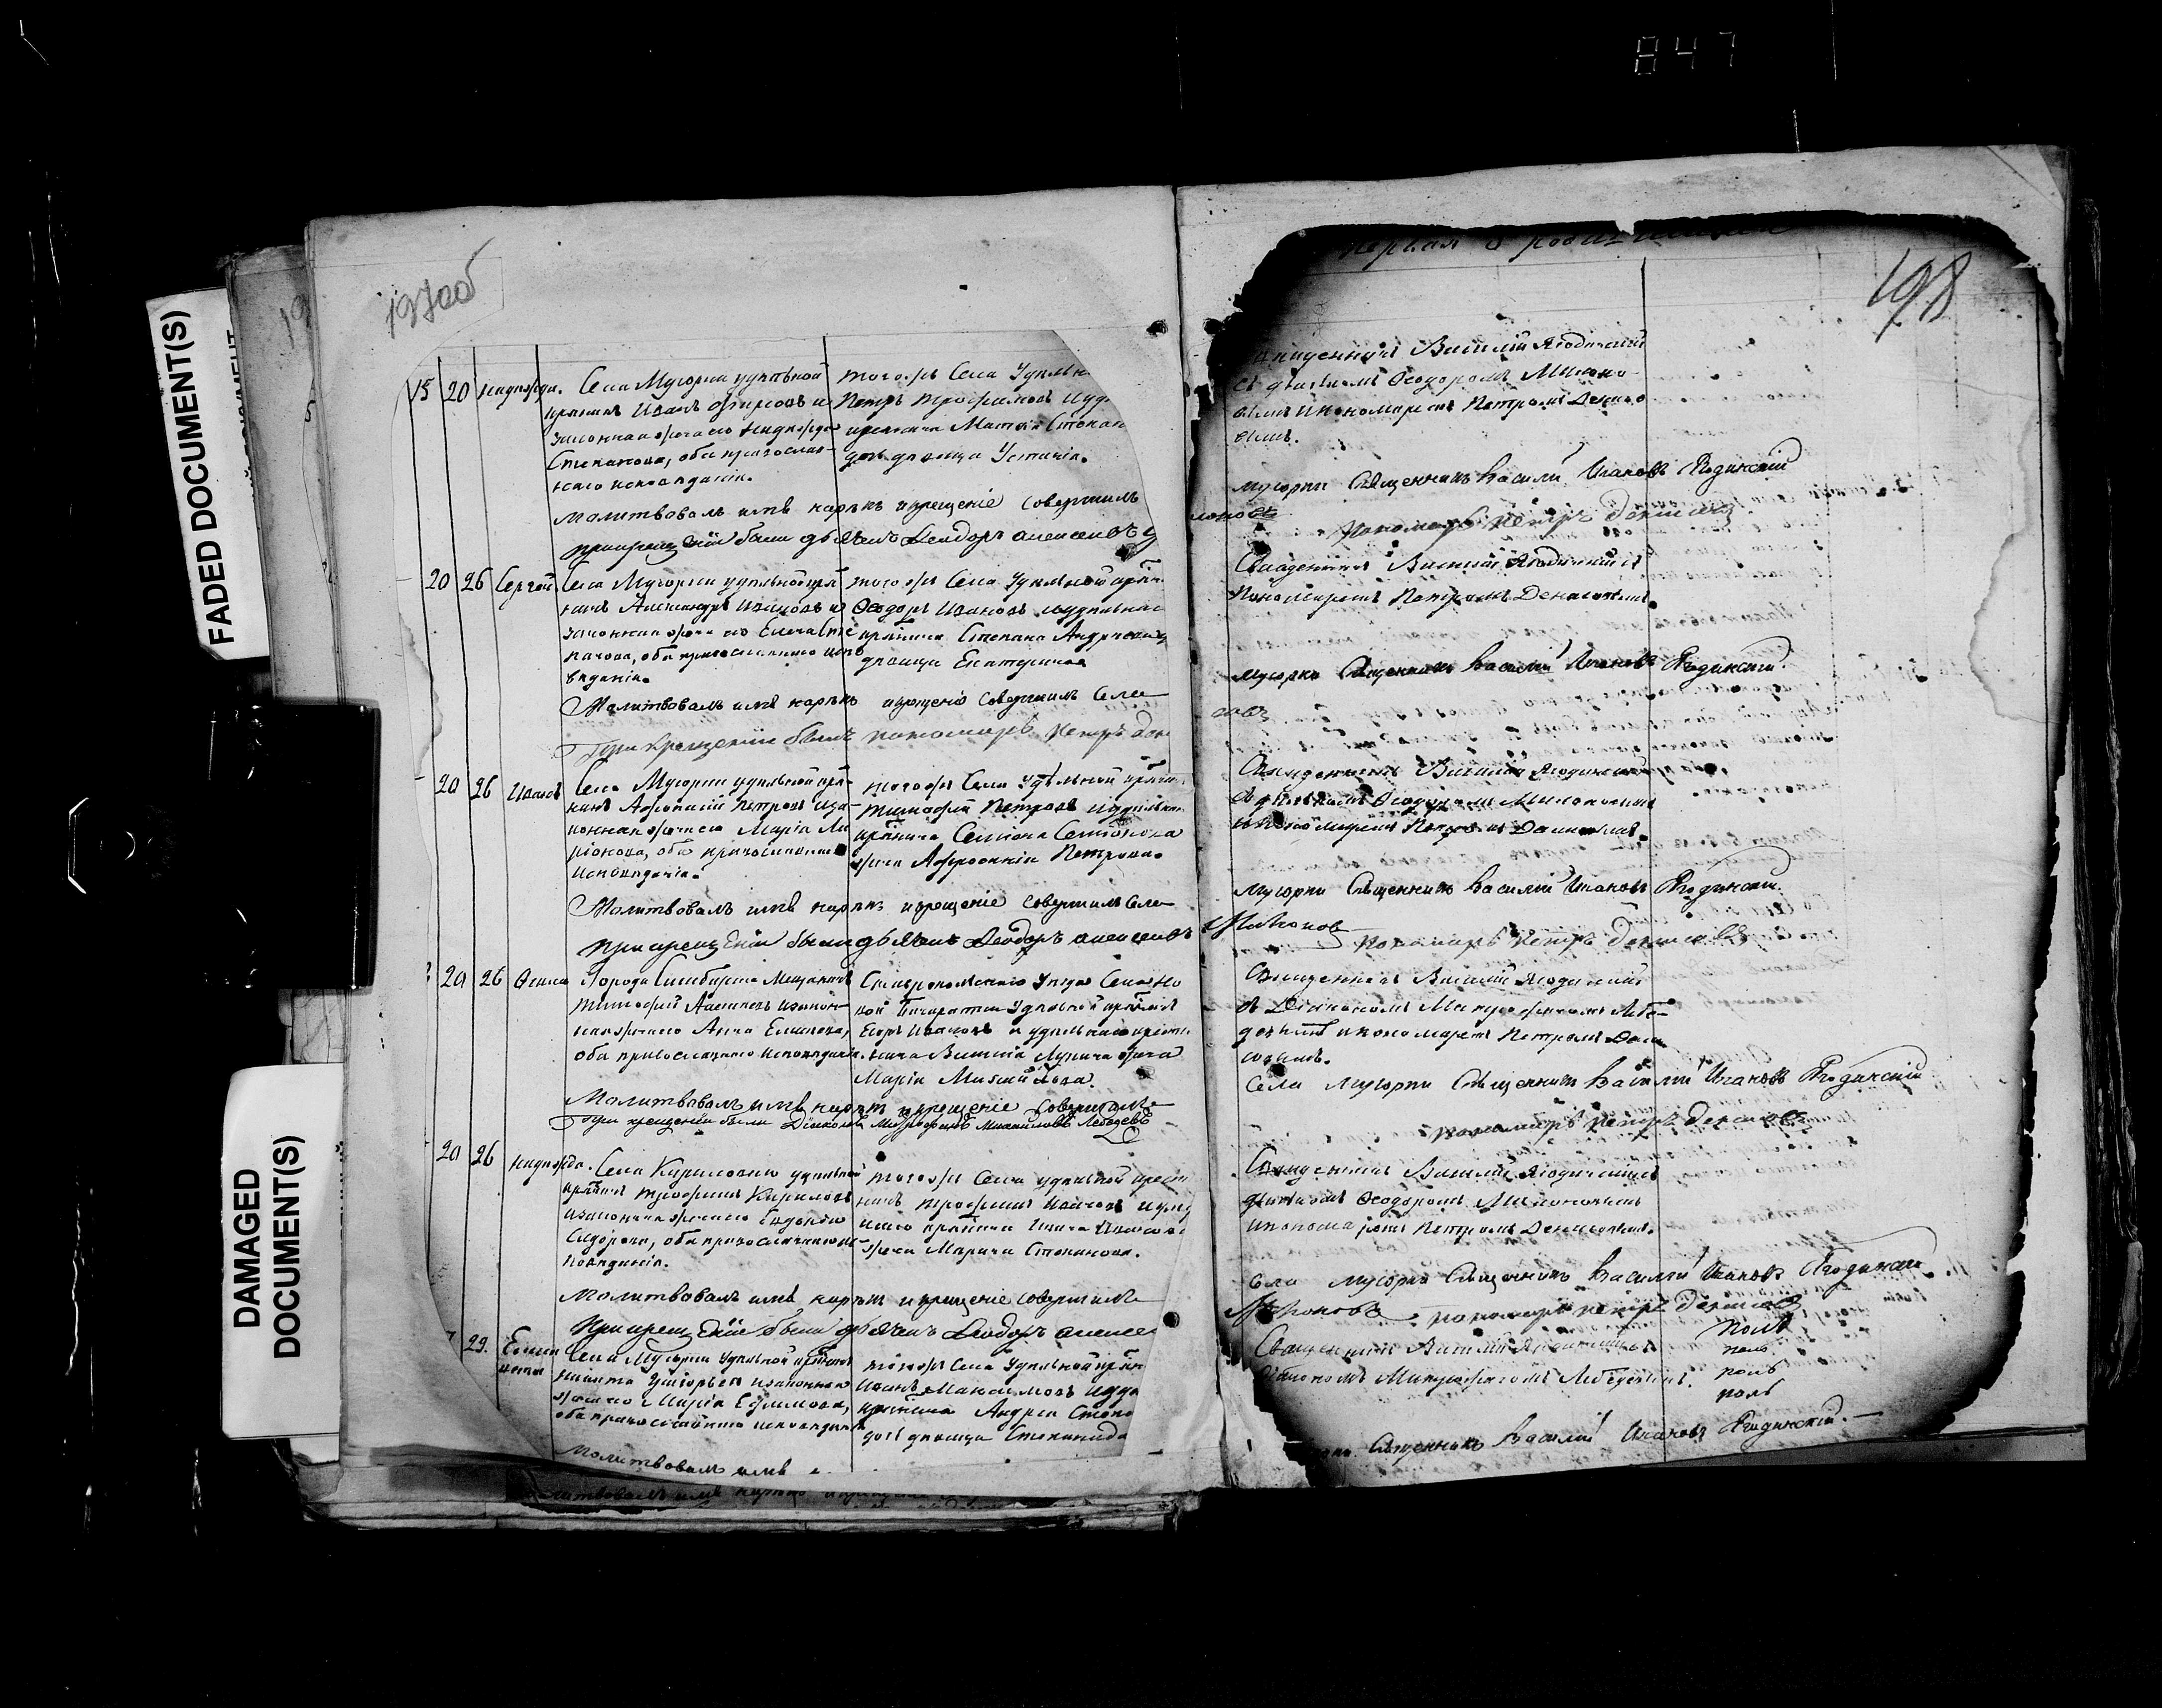 847
FADED DOCUMENT(S)
DAMAGED
DOCUMENT(S)
197об
15 20 Надежда. Села Мусорки удельной
крестьянинъ Иванъ и
законная жена его Надежда
Степанова, оба православ-
наго исповеданiя.
тогожъ Села Удельн
Петръ Трофимовъ и уд
крестьянина Матвея Степан
дочь девица Устинiя.
Молитвовалъ имя нарекъ и крещенiе совершилъ
При крещенiи были дьячекъ Феодоръ алексеевъ
20 26 Сергей. Села Мусорки удельной кре
нинъ Александръ Ивановъ и
законная жена его Елена Сте
панова, оба православнаго испо
веданiя.
тогожъ Села Удельной крест
Феодоръ Ивановъ и удельнаго
крестьянина Степана Андреева
девица Екатерина
Молитвовалъ имя нарекъ и крещенiе совершилъ Села
При крещенiи былъ пономарь петръ дени
20 26 Иванъ Села Мусорки удельной кре
нинъ Афонасiй Петровъ и за
конная жена его Марiя Ла
рiонова, оба православнаго
исповеданiя.
тогожъ Села Удѣльной крестьян
Тимофей Петровъ и удельнаго
крестьянина Семiона Семiонова
жена Афросинiя Петрова.
Молитвовалъ имя нарекъ и крещенiе совершилъ Села
При крещенiи были дьячекъ Феодоръ алексеевъ
20 26 Фекла Города Симбирска Мещанинъ
Тимофей Алексеевъ и закон-
ная жена его Анна Емилева,
оба православнаго исповеданiя.
Ставропольскаго Уезда Села Но
вой Бинарадки Удельной крестьянинъ
Егоръ Ивановъ и удельнаго кресть
янина Василiя Лукина жена
Марiя Матвеева.
Молитвовалъ имя нарекъ и крещенiе совершилъ
При крещенiи были Дiаконъ Митрофанъ Михайловъ Лебедевъ
20 26 Надежда. Села Кириловки удельной
крестьянинъ Трофимъ Кириловъ
и законная жена его Евдокiя
Сидорова, оба православнаго ис-
поведанiя.
тогожъ Села удельной крест
нинъ Трофимъ Ивановъ и удел
наго крестьянина Ивана Иванова
жена Марина Степанова.
Молитвовалъ имя нарекъ и крещенiе совершилъ
При крещенiи были дьячекъ Феодоръ алексее
29. Села Мусорки Удельной крестьянинъ
Никита Григорьевъ и законная
жена его Марiя Ефимова,
оба православнаго исповеданiя
тогожъ Села Удельной крестьян
Иванъ Максимовъ и уде
крестьянина Андрея Степа
дочь девица Степанида
Молитвовалъ имя
198
первая о родившихся
Священникъ Василiй Ягодинскiй
съ дьячкомъ Феодоромъ Милоно-
вымъ и пономаремъ Петромъ Денисо
вымъ.
мусорки Священникъ Василiй Ивановъ Ягодинскiй
лоновъ пономарь петръ денисовъ
Священникъ Василiй Ягодинскiй съ
Пономаремъ Петромъ Денисовымъ.
мусорки Священникъ Василiй Ивановъ Ягодинскiй.
совъ
Священникъ Василiй Ягодинскiй
съ дьячкомъ Феодоромъ Милоновымъ
и пономаремъ Петромъ Денисовымъ.
мусорки Священникъ Василiй Ивановъ Ягодинскiй.
Милоновъ пономарь петръ денисовъ
Священникъ Василiй Ягодинскiй
съ Дiакономъ Митрофаномъ Лебе-
девымъ и пономаремъ Петромъ Дени
совымъ.
Села мусорки Священникъ Василiй Ивановъ Ягодинскiй
пономарь петръ денисовъ
Священникъ Василiй Ягодинскiй съ
дьячкомъ Феодоромъ Милоновымъ
и пономаремъ Петромъ Денисовымъ.
Села мусорки Священникъ Василiй Ивановъ Ягодинскiй
Милоновъ пономарь петръ денисовъ
Священникъ Василiй Ягодинскiй съ
Дiакономъ Митрофаномъ Лебедевымъ.
Священникъ Василiй Ивановъ Ягодинскiй.